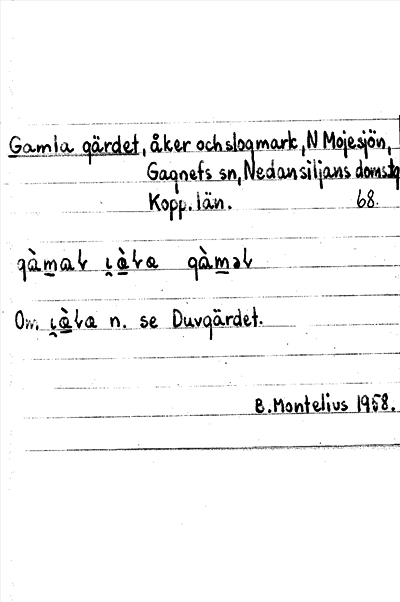 Gamla gärdet, åker och slogmark, N Mojesjön,
Gagnefs sn, Nedansiljans domstg
Kopp. län. 68.
gàmaɫ i̯àɫa gàməɫ
Om i̯àɫa n. se Duvgärdet.
B. Montelius 1958.